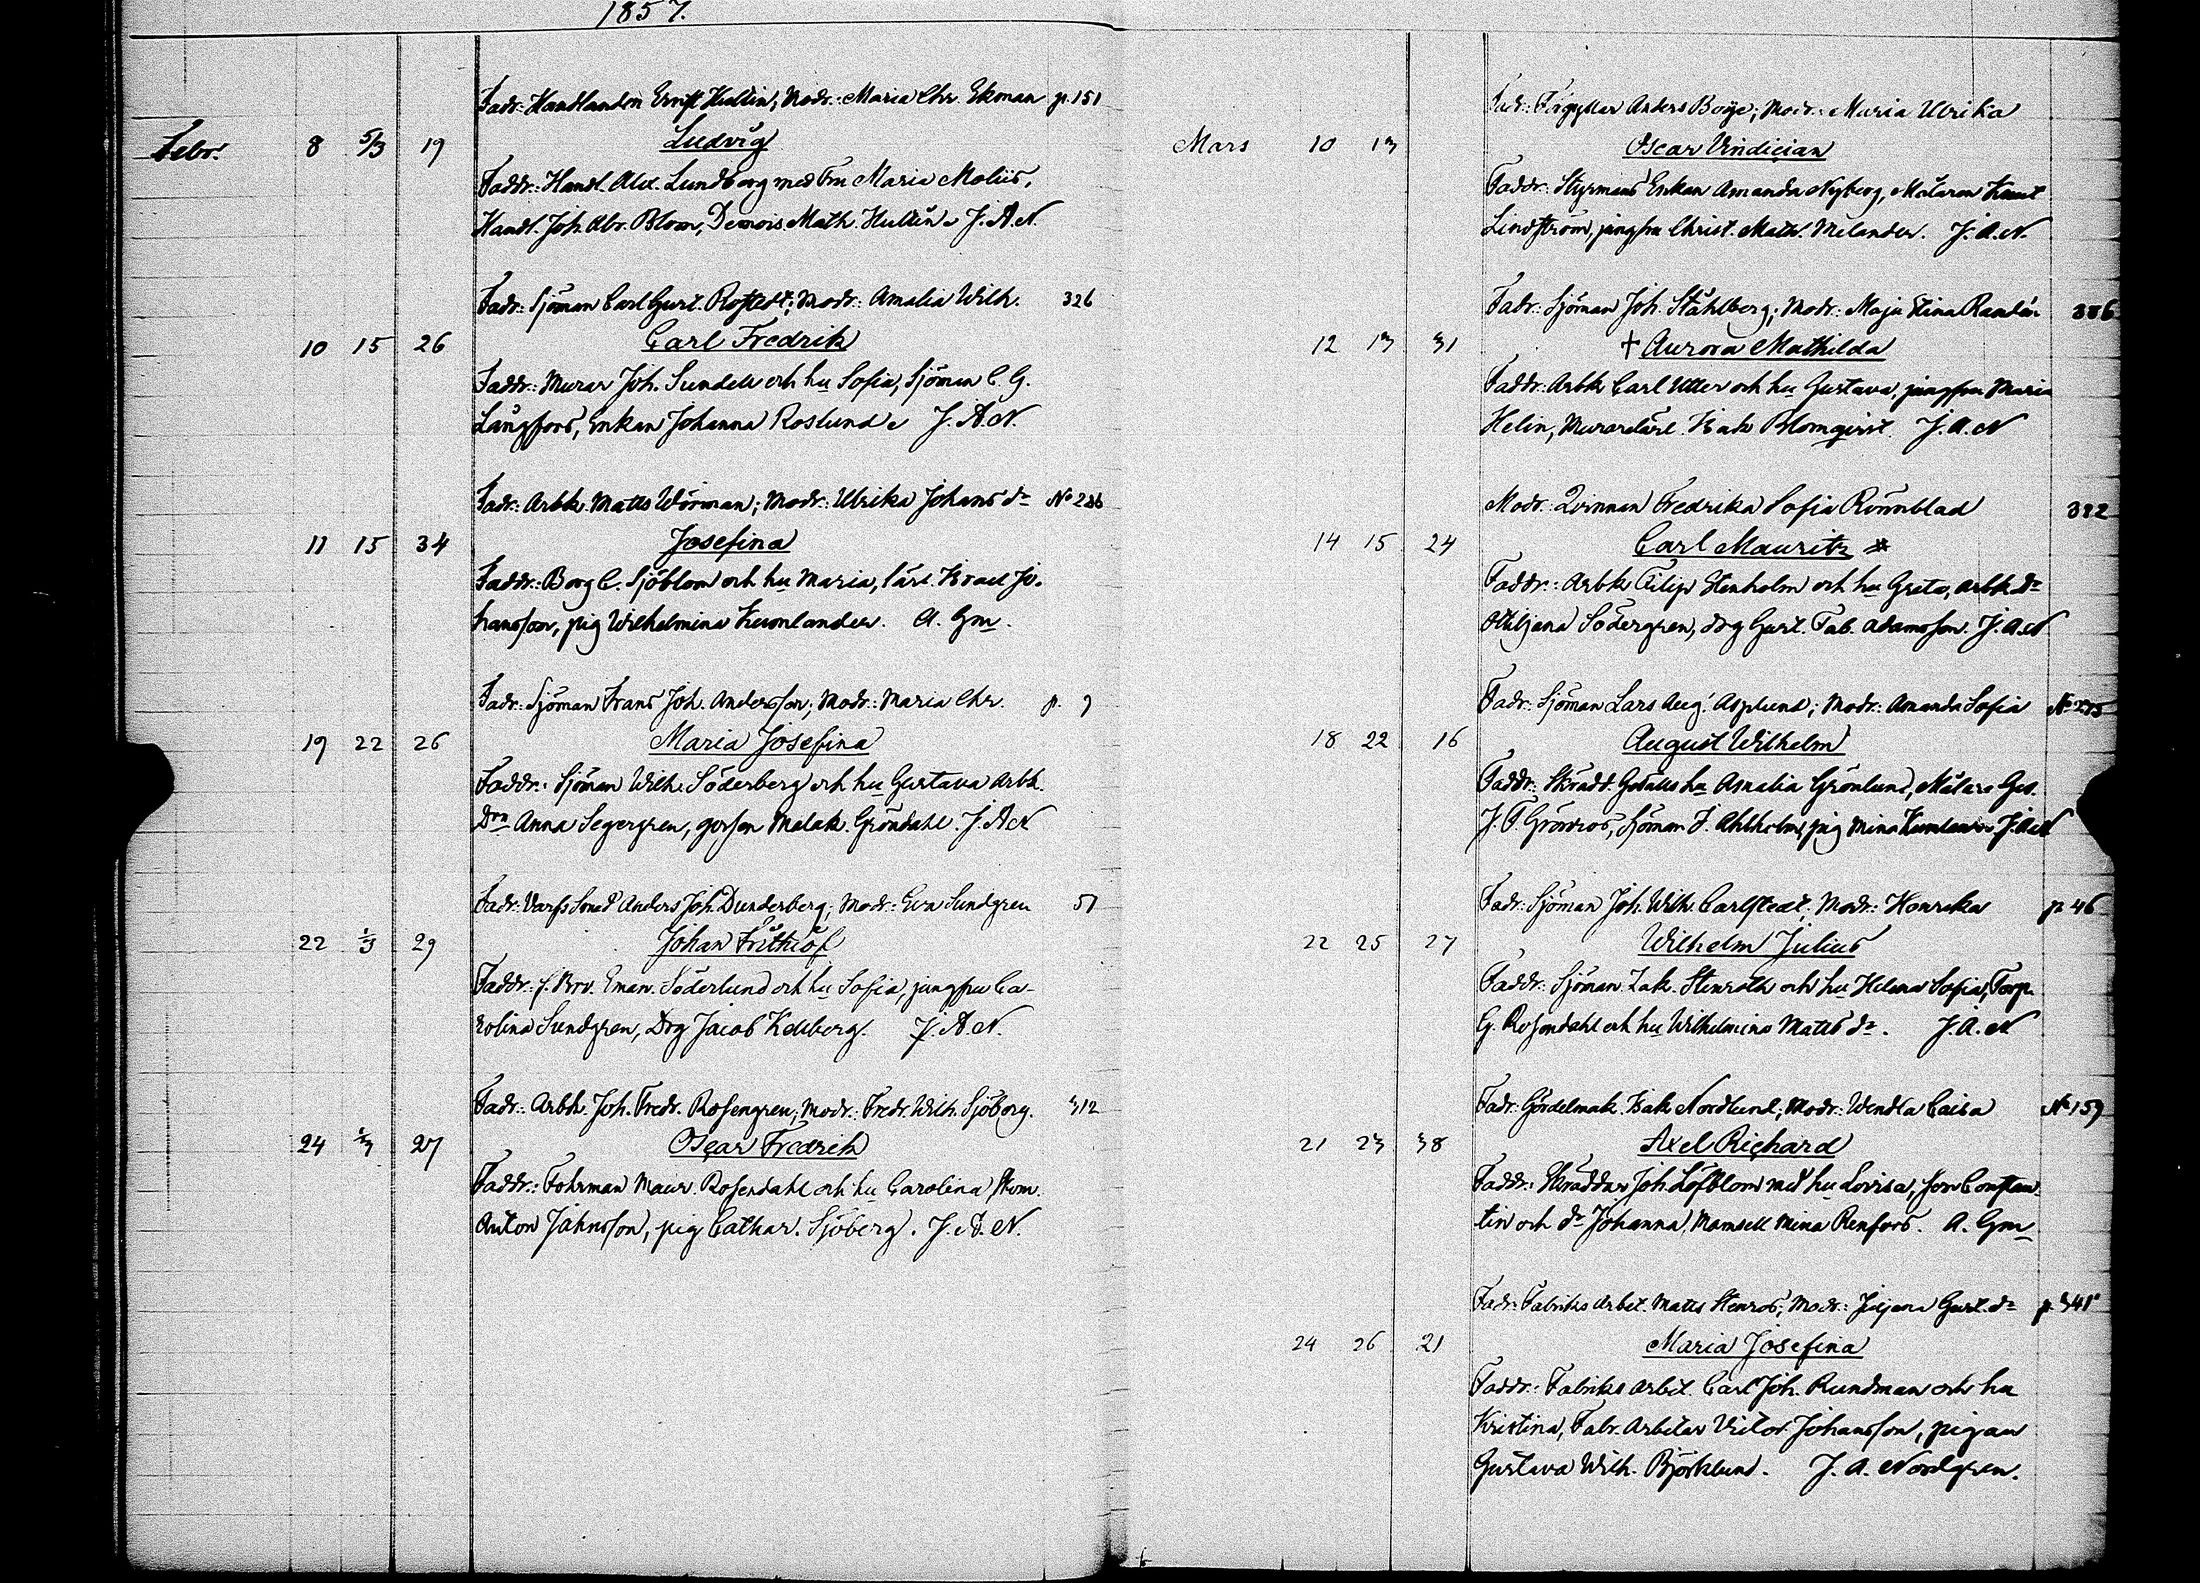 1857.
Fadr: Handlanden Ernst Hultin; Modr: Maria Chr. Ekman p. 151
Febr. 8 5/3 19 Ludvig
Faddr: Handl. Alex. Lundborg med Fru Maria Moliis,
Handl. Joh. Abr. Blom, Demois. Math. Hultin. J. A. N.
Fadr: Sjöman Carl Gust. Rostedt; Modr: Amalia Wilh. 326
10 15 26 Carl Fredrik
Faddr: Murar Joh. Sundell och hu Sofia, Sjöman C. G.
Långfors, Enkan Johanna Roslund. J. A. N.
Fadr: Arbk. Matts Wörman; Modr: Ulrika Johans dr No 286
11 15 34 Josefina
Faddr: Borg C. Sjöblom och hu Maria, lärl. Isaac Jo-
hansson, pig Wilhelmina Kumlander. A. Gm.
Fadr: Sjöman Frans Joh. Andersson; Modr: Maria Chr. p. 9
19 22 26 Maria Josefina
Faddr: Sjöman Wilh. Söderberg och hu Gustava Arbk.
Drn Anna Segergren, gossen Malak. Gröndahl. J. A. N
Fadr: Varfs Smed Anders Joh. Dunderberg; Modr: Eva Sundgren 51
22 1/3 29 Johan Frithiof
Faddr: f. Brv. Eman. Söderlund och hu Sofia, jungfru Ca-
rolina Sundgren, Drg Jacob Kellberg. J. A. N.
Fadr: Arbk. Joh. Fredr. Rosengren; Modr: Fredr. Wilh. Sjöberg. 312
24 1/3 27 Oscar Fredrik
Faddr: Fohrman Maur. Rosendahl och hu Carolina, Skom.
Anton Jahnsson, pig Cathar. Sjöberg. J. A. N.
Fadr: Förgyllar Anders Boije; Modr: Maria Ulrika
Mars 10 13 Oscar Vindician
Faddr: Styrmans Enkan Amanda Nyberg, Målaren Knut
Lindström, jungfru Christ. Math. Melander. J. A. N.
Fadr: Sjöman Joh. Ståhlberg; Modr: Maja Stina Ramlin 386
12 13 31 † Aurora Mathilda
Faddr: Arbk Carl Utter och hu Gustava, jungfru Maria
Helin, Murarelärl. Isak Blomqvist. J. A. N
Modr: Qvinnan Fredrika Sofia Rönnblad 382
14 15 24 Carl Mauritz #
Faddr: Arbk Filip Stenholm och hu Greta, Arbk. Dr
Ottiljana Södergren, drg Gust. Fab. Adamsson. J. A. N
Fadr: Sjöman Lars Aug. Asplund; Modr: Amanda Sofia No 275
18 22 16 August Wilhelm
Faddr: Skrädd. Gesälls hu Amalia Grönlund, Målare Ges.
J. F. Grönroos, Sjöman F. Ahlholm, pig Mina Kumlander. J. A. N
Fadr: Sjöman Joh. Wilh. Carlstedt; Modr: Henrika p. 46
22 25 27 Wilhelm Julius
Faddr: Sjöman Zak. Stenroth och hu Helena Sofia, Torp.
G. Rosendahl och hu Wilhelmina Matts dr. J. A. N
Fadr: Gördelmak. Isak Nordlund; Modr: Wendla Caisa No 159
21 23 38 Axel Richard
Faddr: Skräddar Joh. Löfblom med hu Lovisa, son Constan-
tin och dr Johanna, Mamsell Mina Renfors. A. Gm
Fadr: Fabriks Arbet. Matts Stenros; Modr: Juljana Gust. dr p. 341
24 26 21 Maria Josefina
Faddr: Fabriks Arbet. Carl Joh. Rundman och hu
Kristina, Fabr. Arbetar Victor Johansson, pigan
Gustava Wilh. Björklund. J. A. Nordgren.